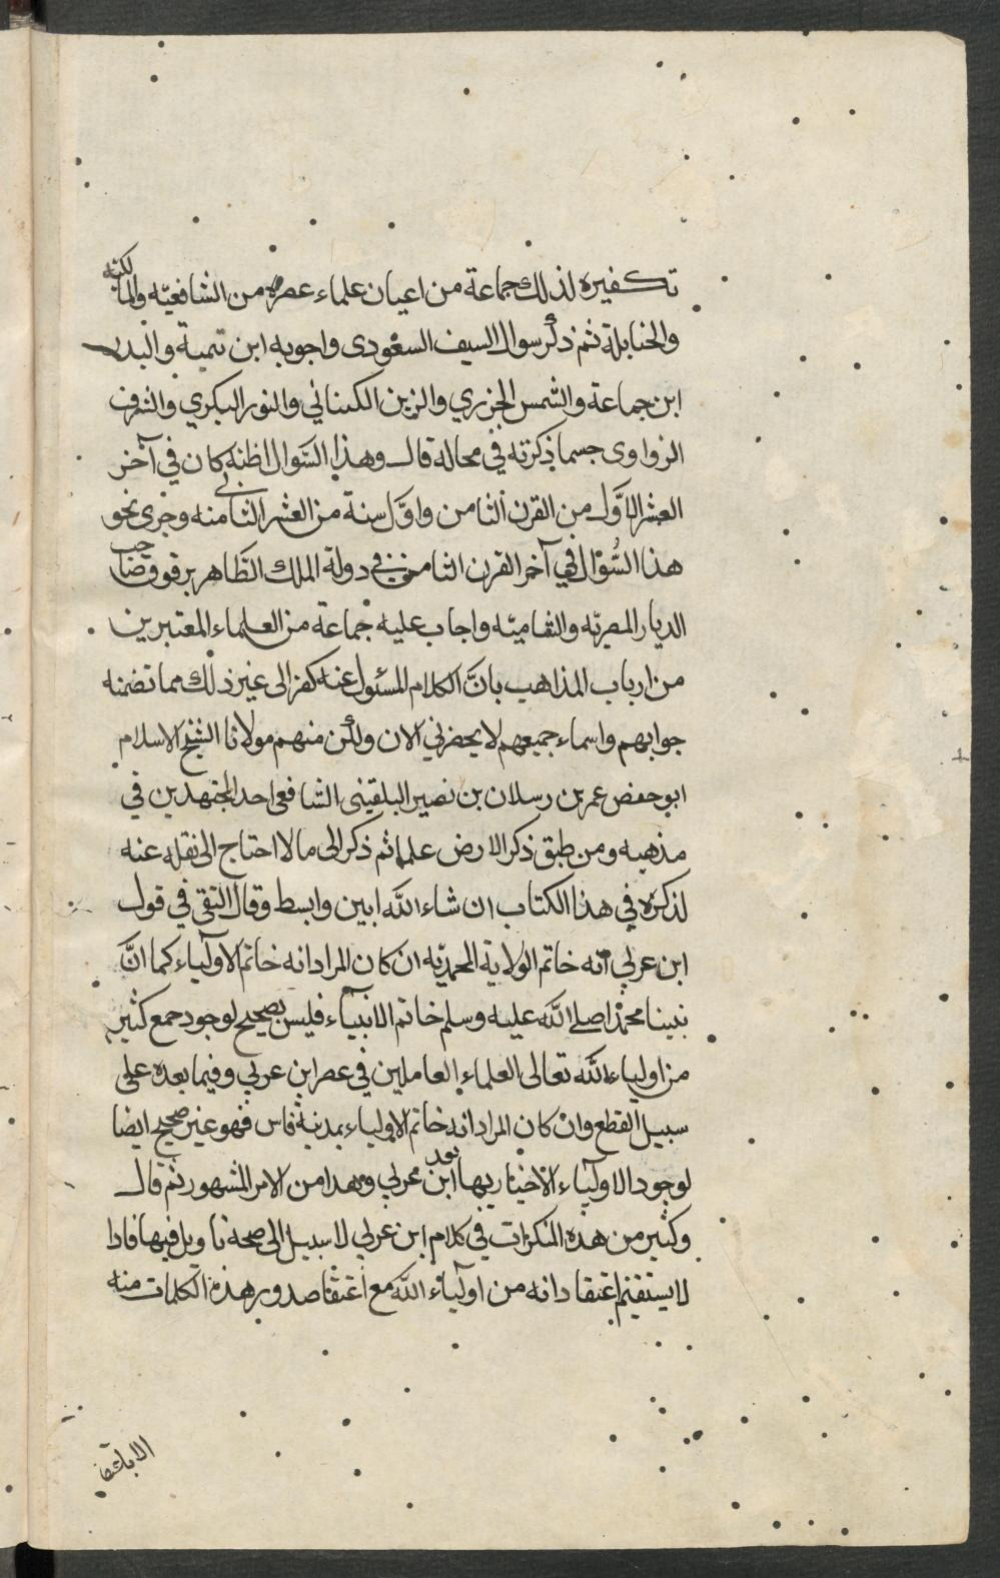 تكفيره لذلك جماعة من اعيان علماء عصره من الشافعيّه والمالكيّه
والحنابلة ثم ذكر سوال السيف السعودى واجوبه ابن تيمية والبدر
ابن جماعة والشمس الجزري والزين الكناني والنور البكري والشرف
الزواوى حسما ذكرته في محاله قال وهذا السّوال اظنه كان في آخر
العشر الاوّل من القرن الثامن واوّل سنة من العشر الثانى منه وجرى نحو
هذا السُّؤال في آخر القرن الثامن في دولة الملك الظّاهر برقوق صاحب
الديار المصريّه والشاميّه واجاب عليه جماعة من العلماء المعتبرين
من ارباب المذاهب بانَّ الكلام المسئول عنه كفر الى غير ذلك مما تضمنه
جوابهم واسماء جميعهم لا يحضرني الان ولكن منهم مولانا الشيخ الاسلام
ابو حفص عمر بن رسلان بن نصير البلقينى الشافعى احد المجتهدين في
مذهبه ومن طبق ذكر الارض علما ثم ذكر الى مالا احتاج الى نقله عنه
لذكره في هذا الكتاب ان شاء الله ابين وابسط وقال التقى في قول
ابن عربي انه خاتم الولاية المحمديّه ان كان المراد انه خاتم الاولياء كما انَّ
نبينا محمدًا صلى الله عليه وسلم خاتم الانبياء فليس بصحيح لوجود جمع كثير
من اولياء الله تعالى العلماء العاملين في عصر ابن عربي وفيما بعده على
سبيل القطع وان كان المراد انه خاتم الاولياء بمدينة فاس فهو غير صحيح ايضا
لوجود الاولياء الاخيار بها بعد ابن عربي وهذا من الامر المشهور ثم قال
وكثير من هذه المنكرات في كلام ابن عربي لا سبيل الى صحة تاويل فيها فاذا
لا يستقيم اعتقاد انه من اولياء الله مع اعتقا صدور هذه الكلمات منه